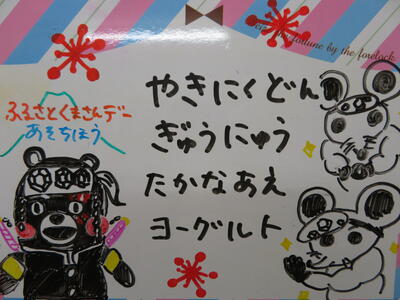 by the forelock
ふるさとくまさんデー
あそちほう
やきにくどん
ぎゅうにゅう
たかなあえ
ヨーグルト